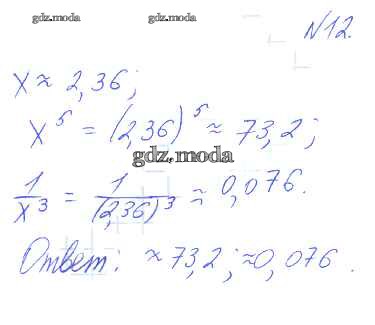 gdz.moda gdz.moda
№12.
x ≈ 2,36;
x⁵ = (2,36)⁵ ≈ 73,2;
gdz.moda
1/x³ = 1/(2,36)³ ≈ 0,076.
Ответ: ≈ 73,2; ≈0,076.